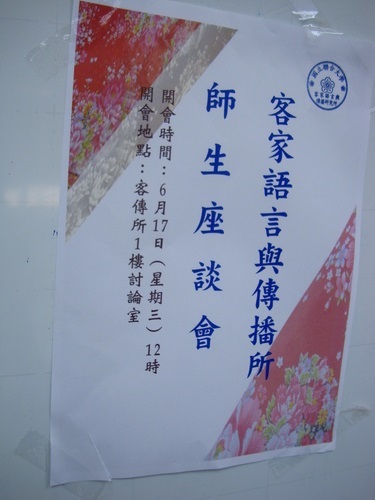 國立聯合大學
客家語言與傳播所
師生座談會
開會時間：6月17日（星期三）12時
開會地點：客傳所1樓討論室